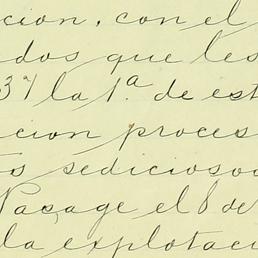 cion, con el
dos que les
37 la 1ª. de est
cion proces
os sediciosos
Pasage el 8 de
la explotaci